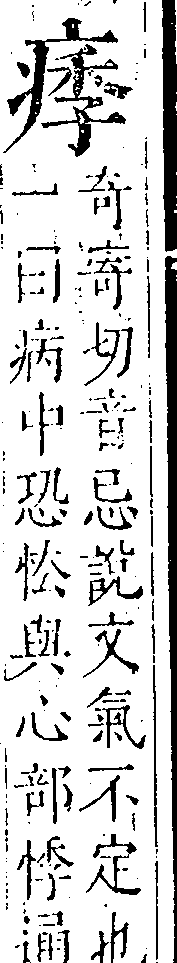 痵
奇寄切音忌說文氣不定也
一曰病中恐忪與心部悸通